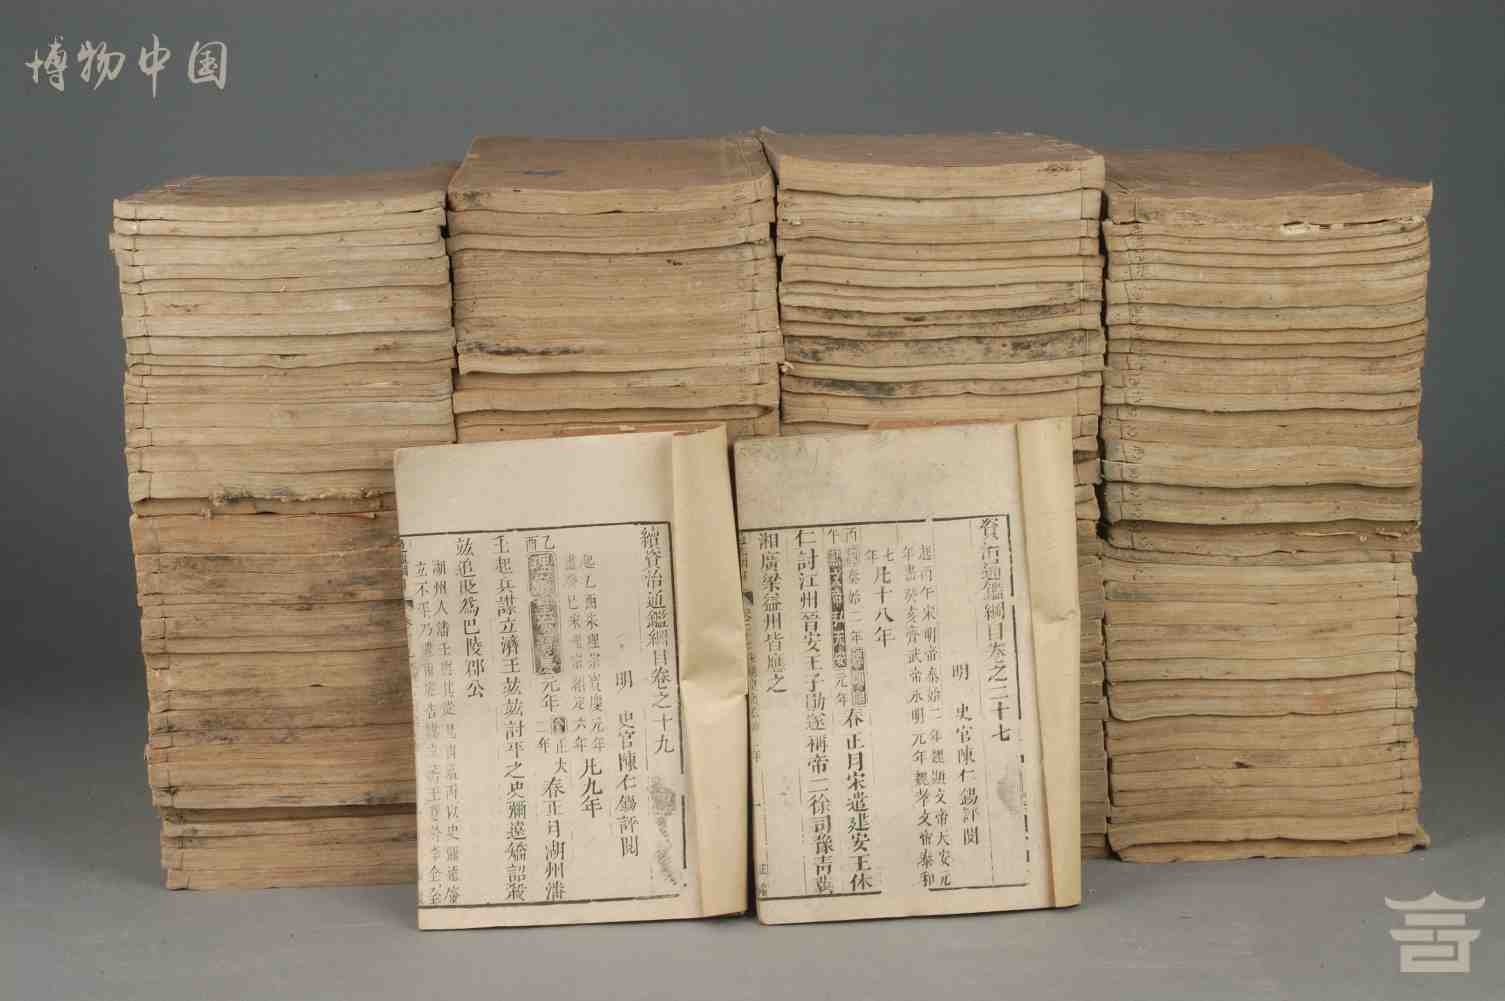 博物中国
資治通鑑綱目卷之二十七
明 史官陳仁錫評閱
起丙午宋明帝泰始二年魏顯文帝天安元
年盡癸亥齊武帝永明元年魏孝文帝泰和
七年
凡十八年
丙午
泰始二年
元年
春正月宋遣建安王休
仁討江州晉安王子勛遂稱帝二徐司豫青冀
湘廣梁益州皆應之
續資治通鑑綱目卷之十九
明 史官陳仁錫評閱
起乙酉宋理宗寶慶元年
盡癸巳宋理宗紹定六年
凡九年
乙酉
元年
金正大二年
春正月湖州潘
壬起兵謀立濟王竑竑討平之史彌遠矯詔殺
竑追貶爲巴陵郡公
湖州人潘壬